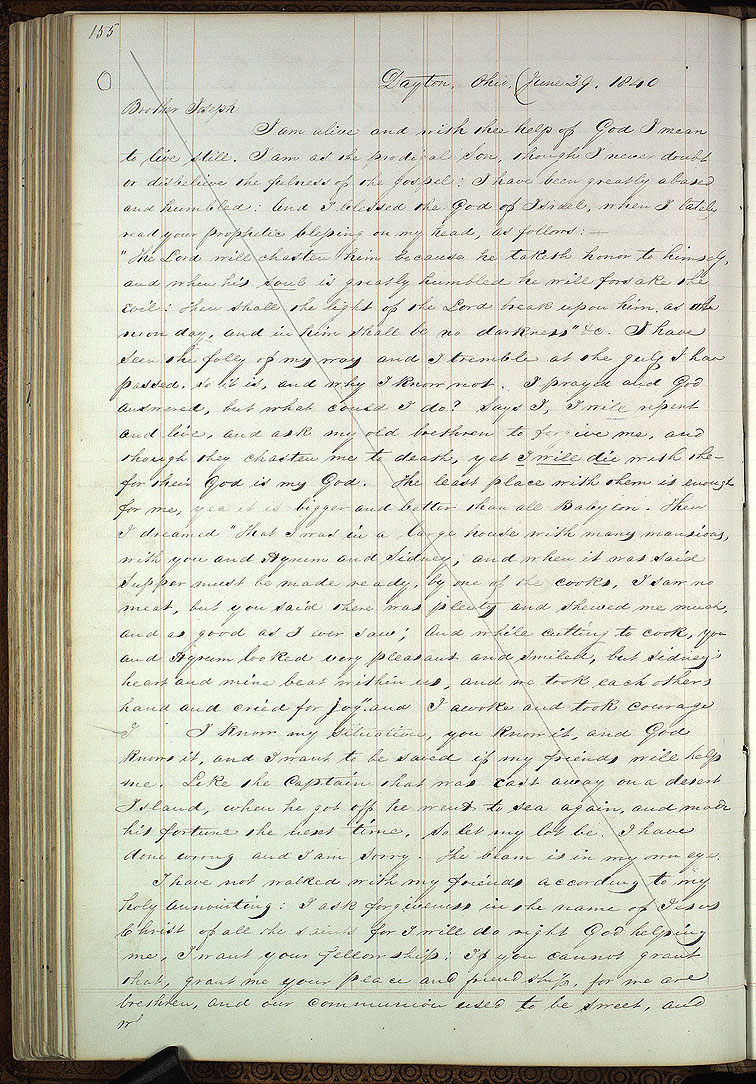 155
Dayton, Ohio, (June 29. 1840
Brother Joseph
I am alive and with thee help of God I mean
to live still. I am as the prodigal Son, though I never doubt
or disbelieve the fulness of the gospel: I have been greatly abased
and humbled: And I blessed the God of Israel, when I lately
read your prophetic blessing on my head, as follows:—
"The Lord will chasten him because he taketh honor to himself,
and when his soul is greatly humbled he will forsake the
evil: Then shall the light of the Lord break upon him, as the
noon day, and in him shall be no darkness" &c. I have
seen the folly of my way and I tremble at the gulf I have
passed. so it is, and why I know not. I prayed and God
answered, but what could I do? Says I, I will repent
and live, and ask my old brethren to forgive me, and
though they chasten me to death, yet I will die with the-
for their God is my God. The least place with them is enough
for me, yea it is bigger and better than all Babylon. Then
I dreamed "That I was in a large house with many mansions,
with you and Hyrum and Sidney; and when it was said
Supper must be made ready, by one of the cooks, I saw no
meat, but you said there was plenty and shewed me much,
and as good as I ever saw; And while cutting to cook, you
and Hyrum looked very pleasant and smiled, but Sidney's
heart and mine beat within us, and we took each others
hand and cried for joy" and I awoke and took courage
I I know my situation, you know it, and God
knows it, and I want to be saved if my friends will help
me. Like the Captain that was cast away on a desert
Island, when he got off he went to sea again, and made
his fortune the next time, so let my lot be. I have
done wrong and I am sorry. The beam is in my own eye.
I have not walked with my friends according to my
holy annointing: I ask forgiveness in the name of Jesus
Christ of all the saints for I will do right God helping
me, I want your fellowship; If you cannot grant
that, grant me your peace and friendship, for we are
brethren, and our communion used to be sweet, and